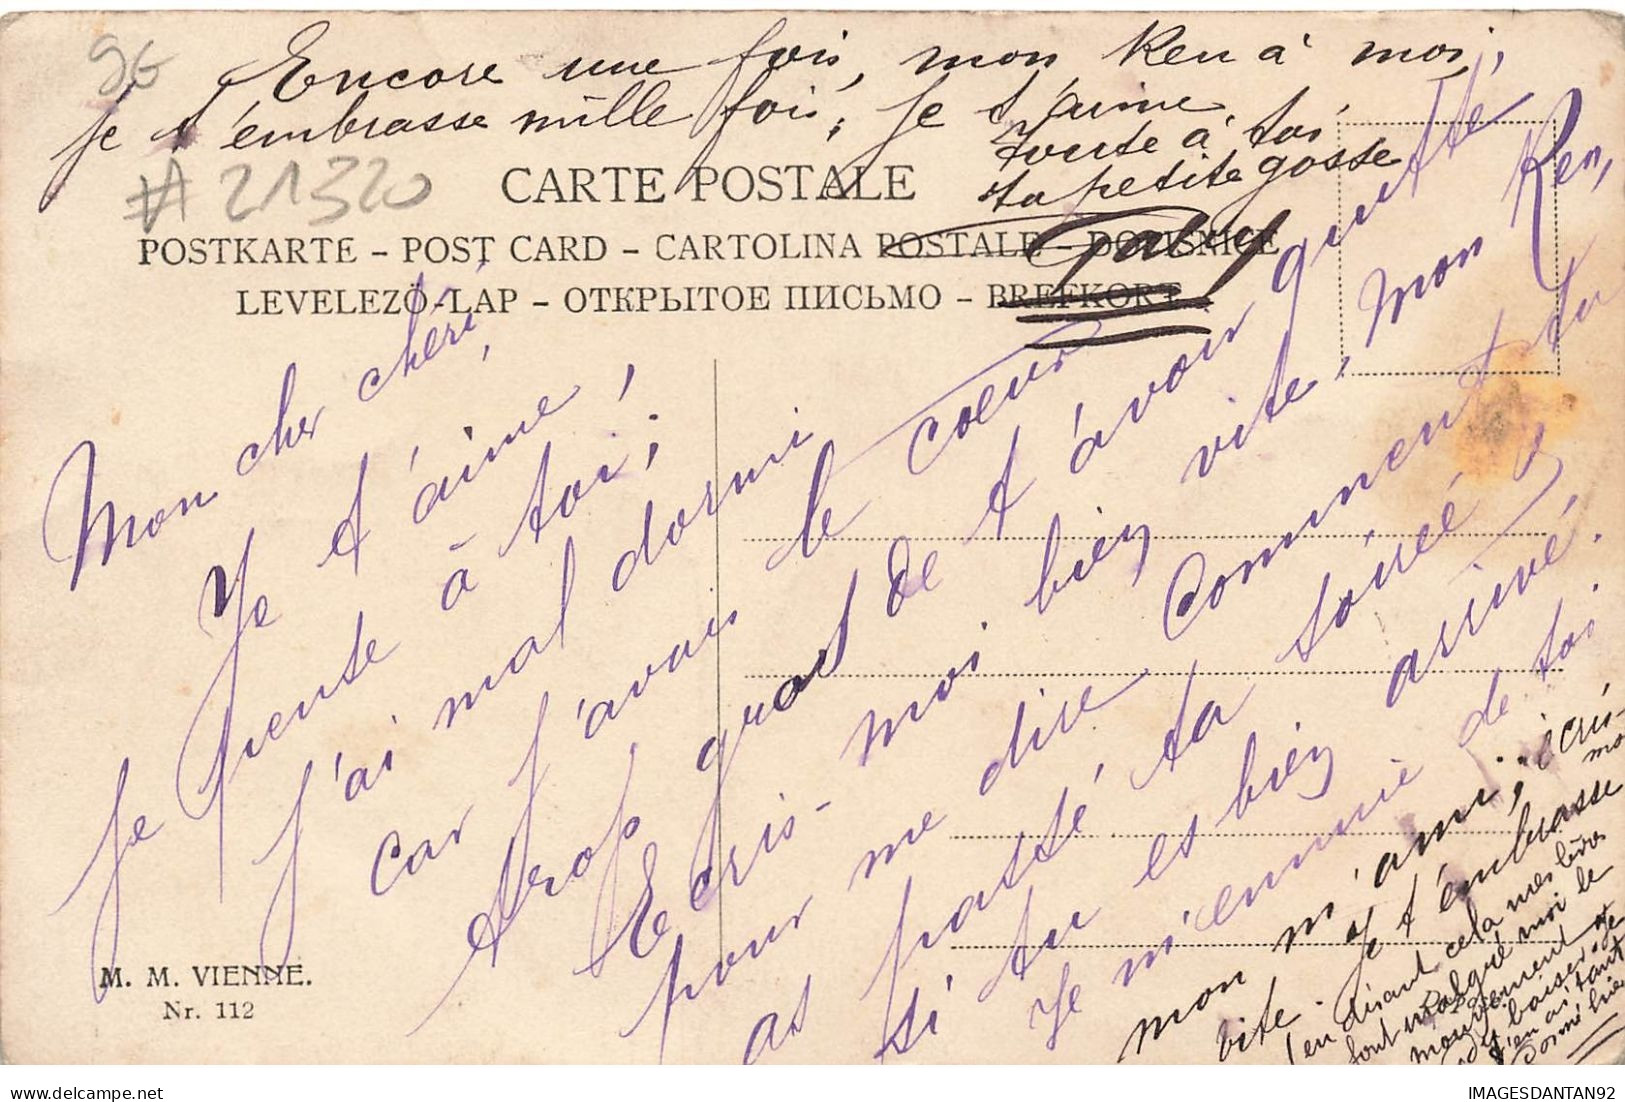 96
Encore une fois, mon Ren à moi,
je t'embrasse mille fois, je t'aime
toute à toi
ta petite gosse
Gaby
# 21320
CARTE POSTALE
POSTKARTE – POST CARD – CARTOLINA POSTALE – DOPISNICE
LEVELEZŐ-LAP – ОТКРЫТОЕ ПИСЬМО – BREFKORT
Mon cher chéri,
Je t'aime !
Je pense à toi ;
J'ai mal dormi
car j'avais le cœur
trop gros de t'avoir quitté,
Ecris-moi bien vite, mon Ren,
pour me dire comment tu
as passé ta soirée &
si tu es bien arrivé.
Je m'ennuie de toi.
mon m'ami ; écris-
moi
vite. Je t'embrasse
en disant cela mes lèvres
font malgré moi le
mouvement
baiser
j'en ai tant
M. M. VIENNE.
Nr. 112
IMAGESDANTAN92